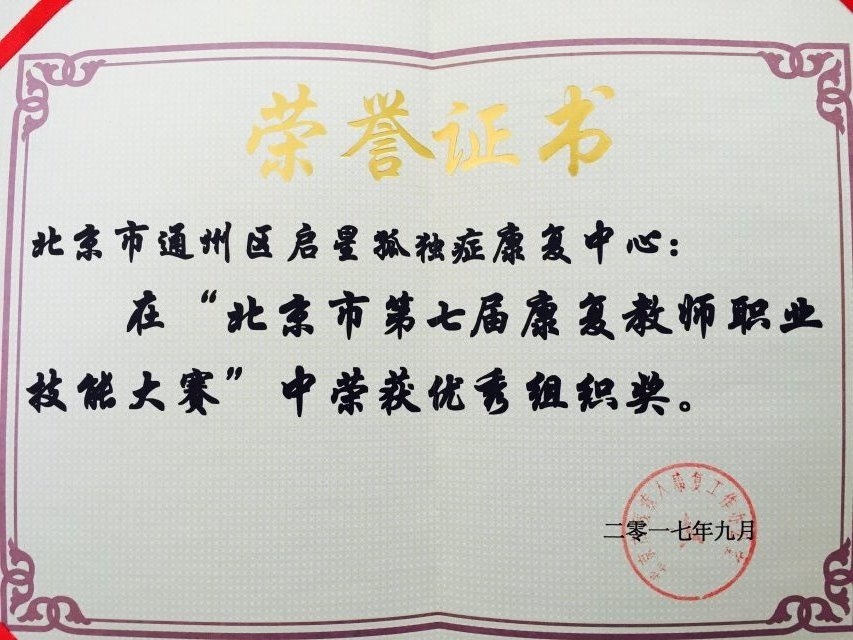 荣誉证书
北京市通州区启星孤独症康复中心：
在“北京市第七届康复教师职业
技能大赛”中荣获优秀组织奖。
二零一七年九月